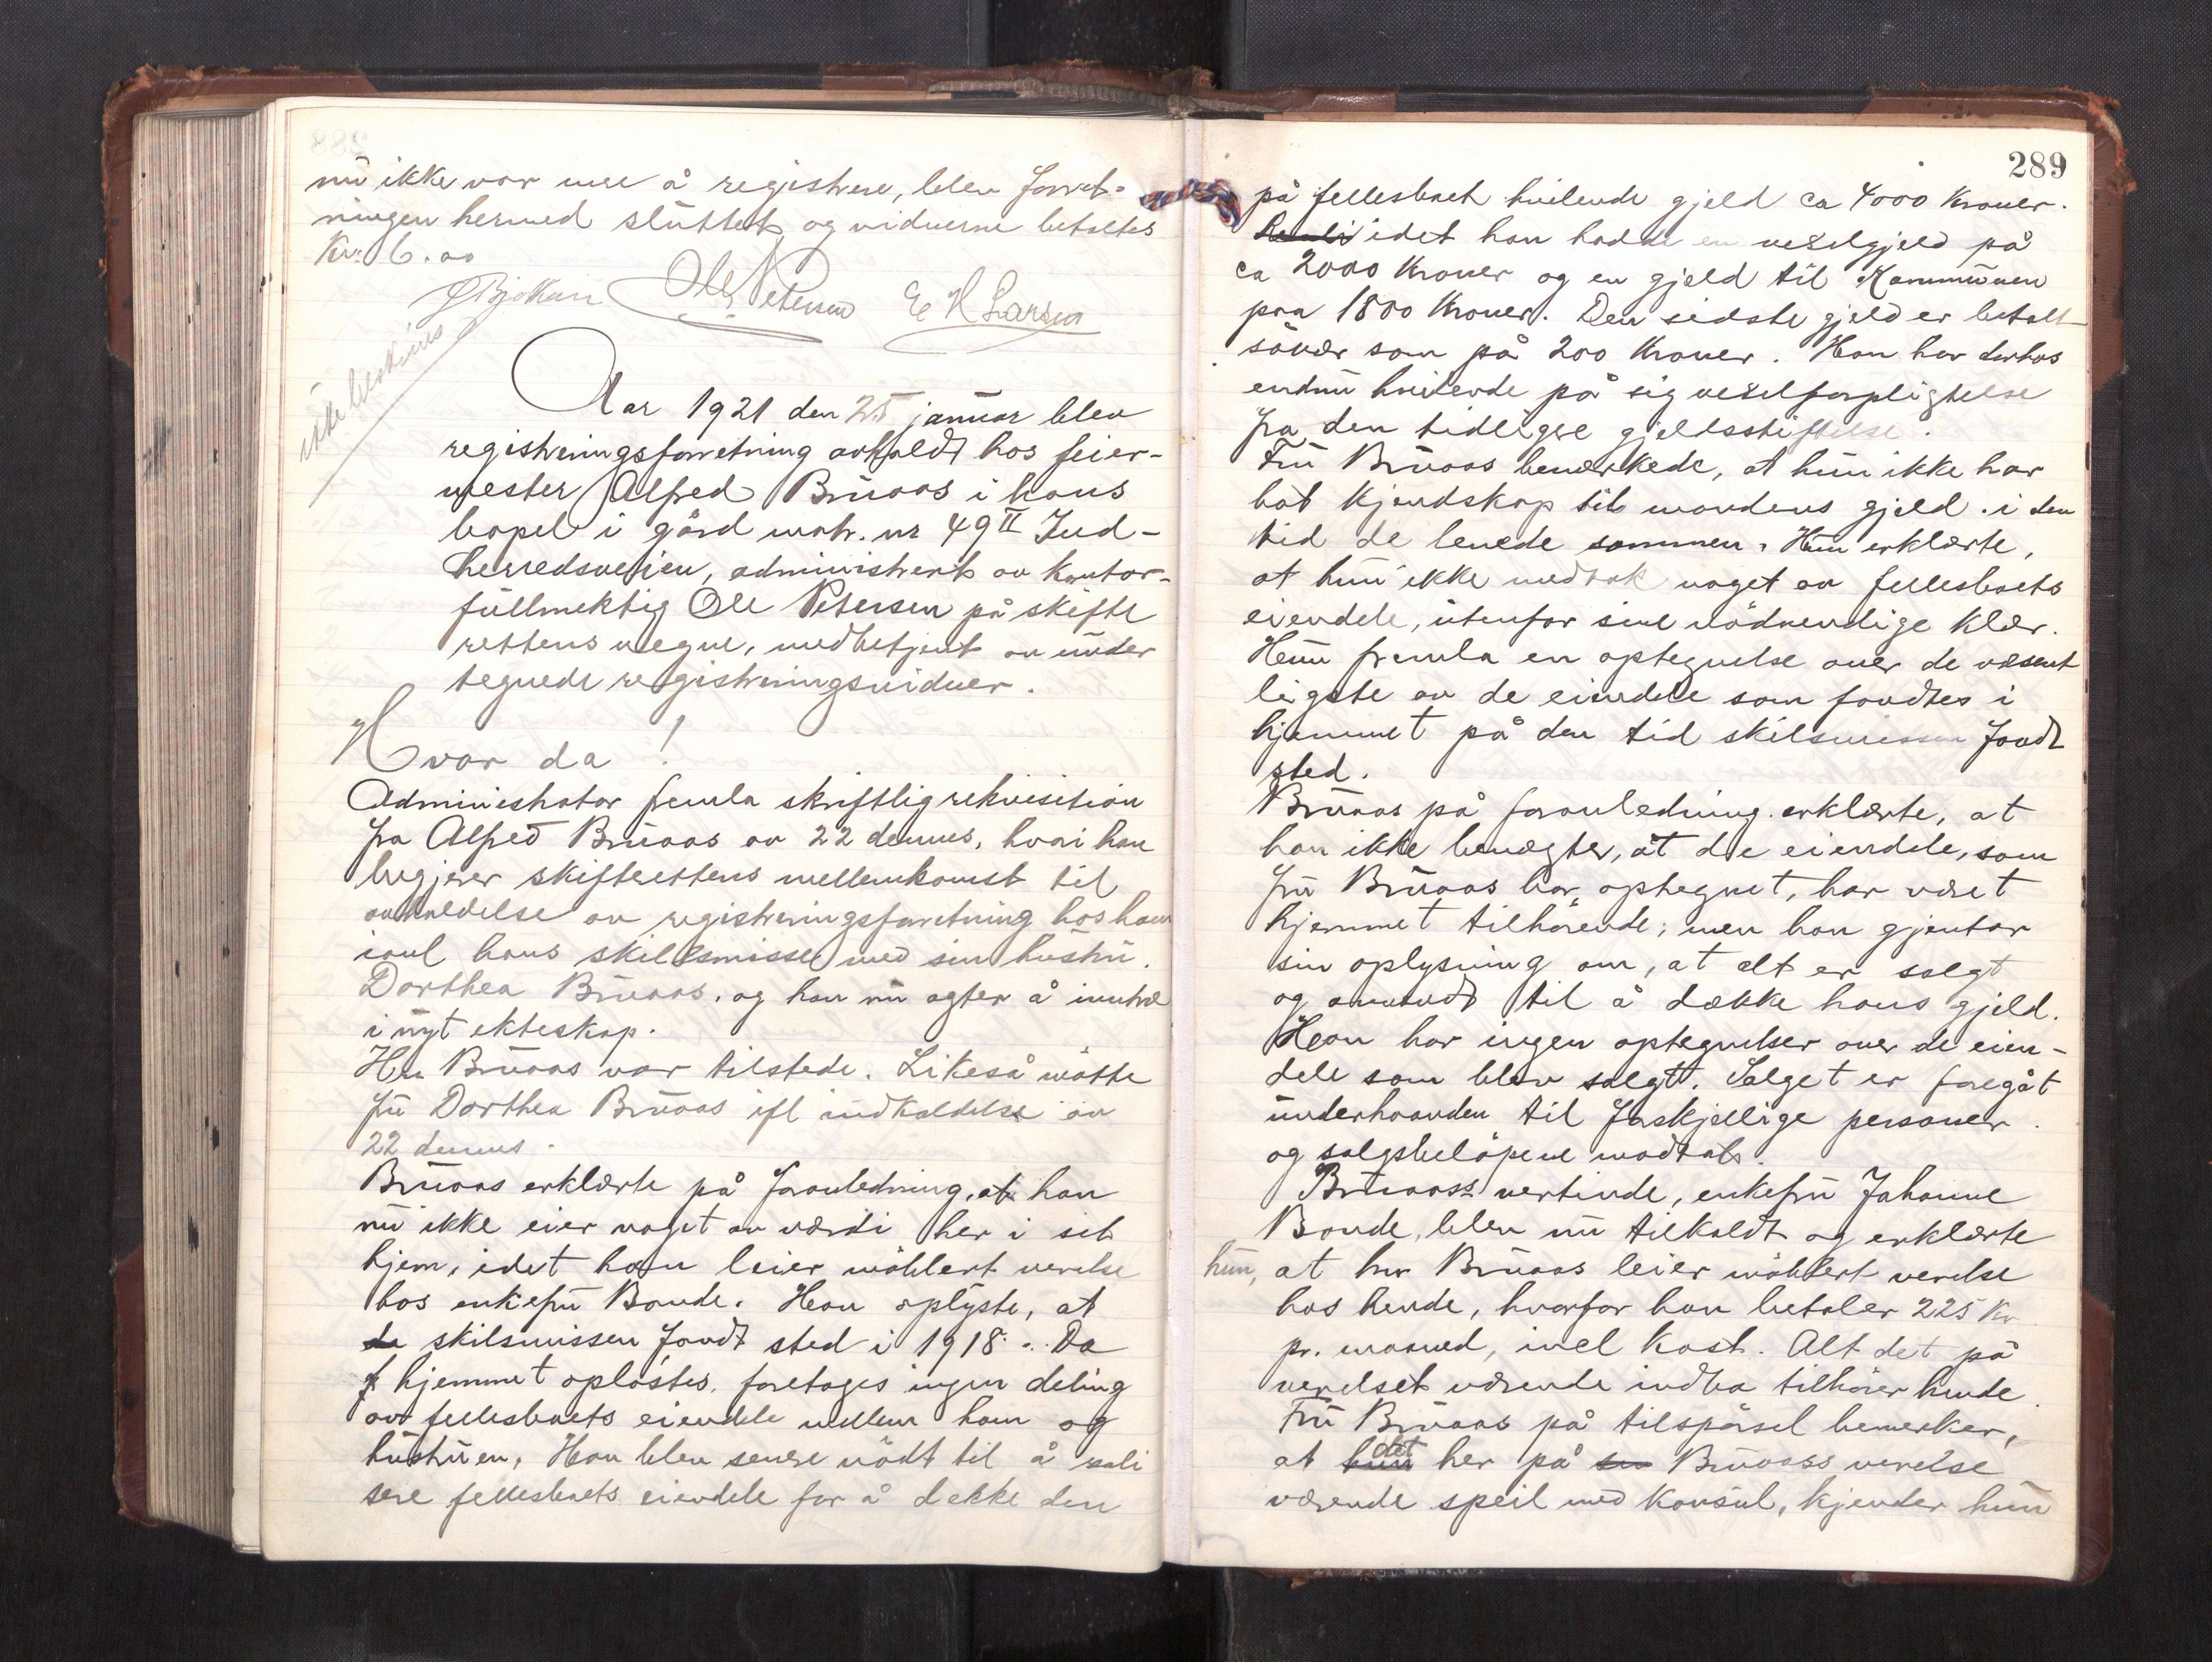 nu ikke var mere å registrere, blev forret-
ningen hermed sluttet og vidnerne betaltes
Kr. 6.00
Ole Petersen E H Larsen
ikke beskrives
Aar 1921 den 25 januar blev
registreringsforretning avholdt hos feier-
mester Alfred Bruaas i hans
bopel i gård matr. nr 49 II Ind-
herredsveien, administrert av kontor-
fullmektig Ole Petersen på skifte
rettens vegne, medbetjent av under
tegnede registreringsvidner.
Hvor da!
Administrator fremla skriftlig rekvisition
fra Alfred Bruaas av 22 dennes, hvori han
begjerer skifterettens mellemkomst til
avholdelse av registreringsforretning hos ham
ianl hans skillsmisse med sin hustru
Dorthea Bruaas, og han nu agter å inntræ
i nyt ekteskap.
Hr Bruaas var tilstede. Likeså møtte
fru Dorthea Bruaas ifl indkaldelse av
22 dennes.
Bruaas erklærte på foranledning, at han
nu ikke eier noget av værdi her i sit
hjem, idet han leier møblert verelse
hos enkefru Bonde. Han oplyste, at
de skilsmissen fandt sted i 1918. Da
hjemmet opløstes, foretoges ingen deling
av fellesboets eiendele mellem ham og
hustruen. Han blev senere nødt til å reali
sere fellesboets eiendele for å dekke den
289
på fellesboet hvilende gjeld ca 4000 Kroner.
idet han hadde en vekselgjeld på
ca 2000 Kroner og en gjeld til Kommunen
paa 1800 Kroner. Den sidste gjeld er betalt
sånær som på 200 Kroner. Han har derhos
endnu hvilende på sig vekselforpligtelse
fra den tidligere gjeldsstiftelse.
Fru Bruaas bemerkede, at hun ikke har
hat kjendskap til mandens gjeld i den
tid de levede sammen. Hun erklærte,
at hun ikke medtok noget av fellesboets
eiendele, utenfor sine nødvendige klær.
Hun fremla en optegnelse over de væsent
ligste av de eiendele som fandtes i
hjemmet på den tid skilsmissen fandt
sted.
Bruaas på foranledning erklærte, at
han ikke benægter, at de eiendele, som
fru Bruaas har optegnet, har været
hjemmet tilhørende; men han gjentar
sin oplysning om, at alt er solgt
og anvendt til å dække hans gjeld.
Han har ingen optegnelser over de eien-
dele som blev solgt. Salget er foregåt
underhaanden til forskjellige personer
og salgsbeløpene mottat.
Bruaass vertinde, enkefru Johanne
Bonde, blev nu tilkaldt og erklærte
hun, at hr Bruaas leier møblert verelse
hos hende, hvorfor han betaler 225 Kr
pr. maaned, incl kost. Alt det på
verelset værende indbo tilhører hende.
Fru Bruaas på tilspørsel bemerker,
at hun det her på sin Bruaass verelse
værende speil med konsul, kjender hun